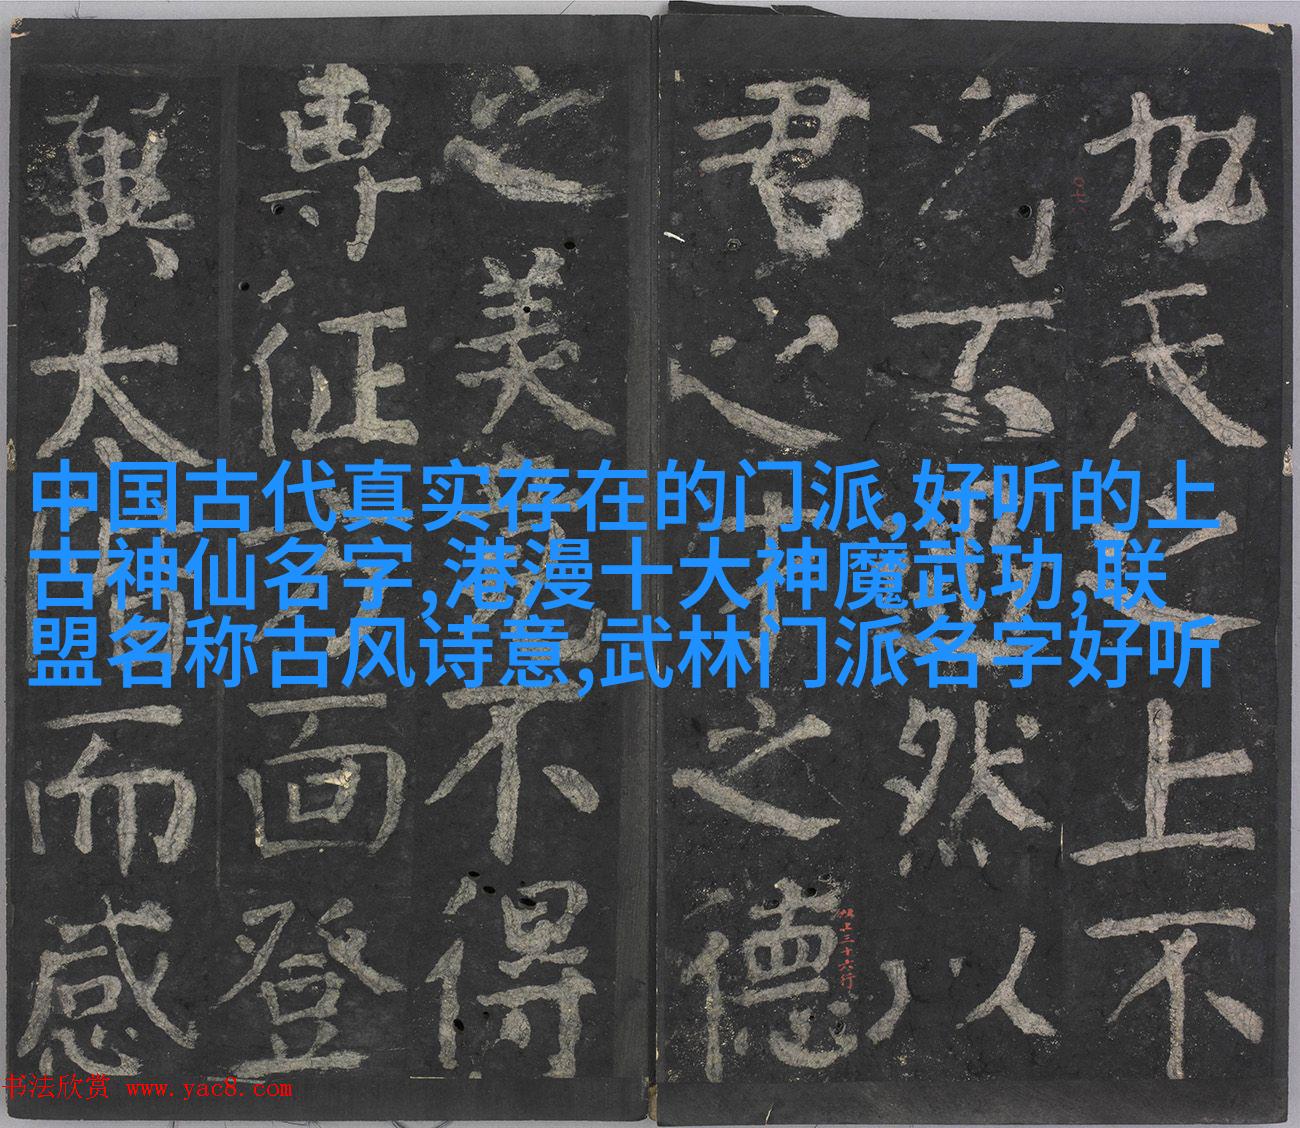 中国古代真实存在的门派,好听的上
古神仙名字,港漫十大神魔武功,联
盟名称古风诗意,武林门派名字好听
加氏之
上不
然以
君之
之德
之美
不得
専征
面登
異太
而感
帖上三十六行
书法欣赏 www.yac8.com